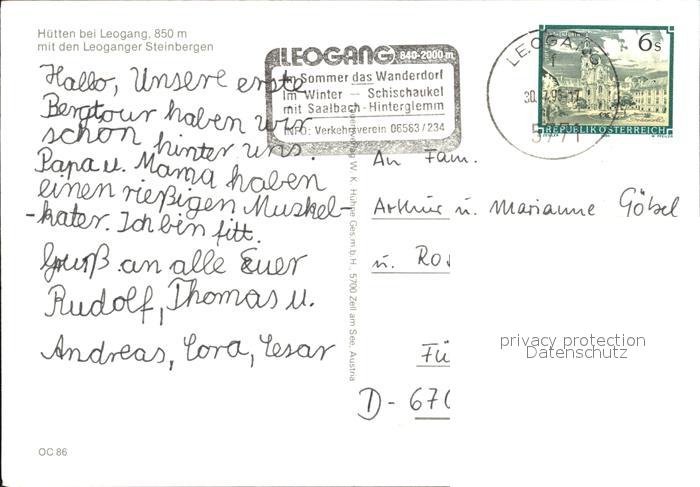 Hütten bei Leogang, 850 m
mit den Leoganger Steinbergen
LEOGANG 840-2000 m
Im Sommer das Wanderdorf
Im Winter – Schischaukel
mit Saalbach-Hinterglemm
INFO: Verkehrsverein 06583/234
LEOGANG
5771
6 S
REPUBLIK ÖSTERREICH
Hallo, Unsere erste
Bergtour haben wir
schon hinter uns.
Papa u. Mama haben
einen rießigen Muskel-
-kater. Ich bin fitt.
Gruß an alle Euer
Rudolf, Thomas u.
Andreas, Cora, Cesar
W. K. Hühne Ges.m.b.H., 5700 Zell am See, Austria
An Fam.
Arthur u. Marianne Göbel
u. Ros
Fü
D- 670
privacy protection
Datenschutz
OC 86